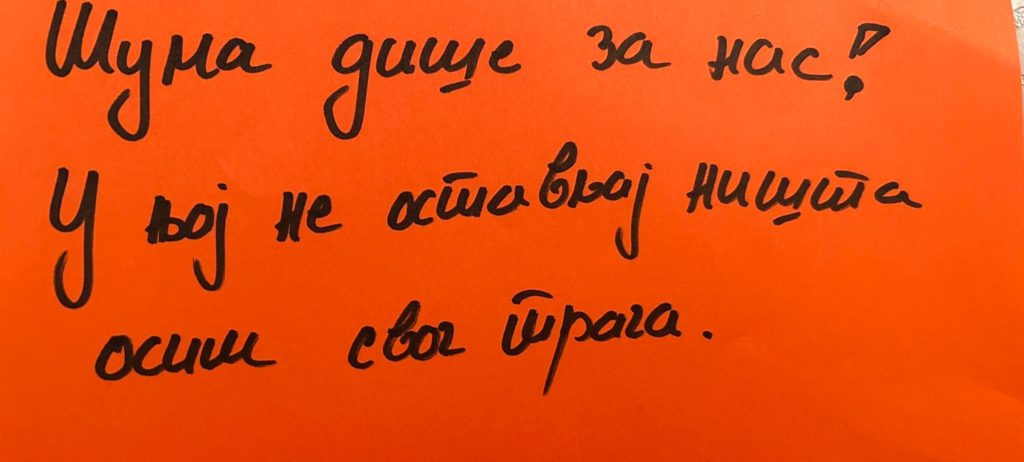 Шума дише за нас!
У њој не остављај ништа
осим свог трага.